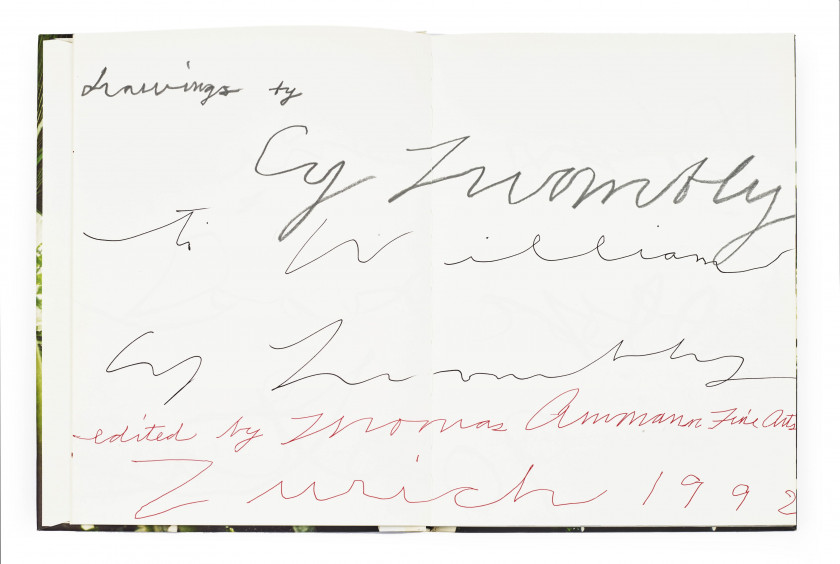 drawings by
Cy Twombly
to William
Cy Twombly
edited by Thomas Ammann Fine Arts
Zurich 1992